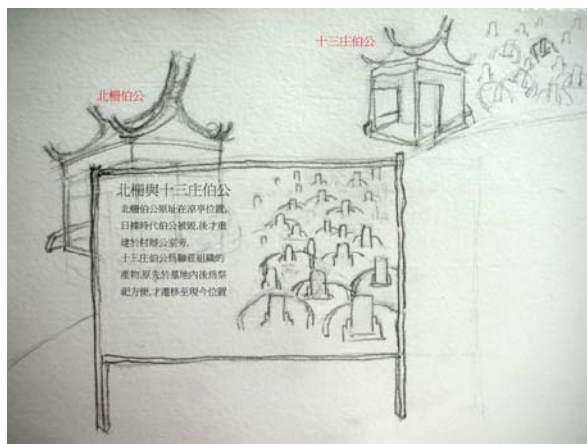 十三庄伯公
北柵伯公
北柵與十三庄伯公
北柵伯公原址在涼亭位置,
日據時代伯公被毀,後才重
建於村辦公室旁,
十三庄伯公為聯莊組織的
產物,原先於墓地內後為祭
祀方便,才遷移至現今位置